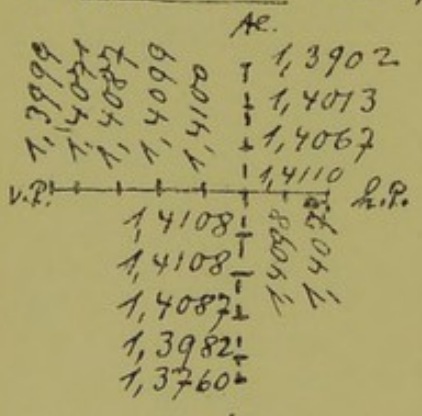 Ae.
1,3902
1,4013
1,4067
1,4110
1,3999
1,4071
1,4087
1,4099
1,4110
v.P.
h.P.
1,4108
1,4108
1,4087
1,3982
1,3760
1,4098
1,407